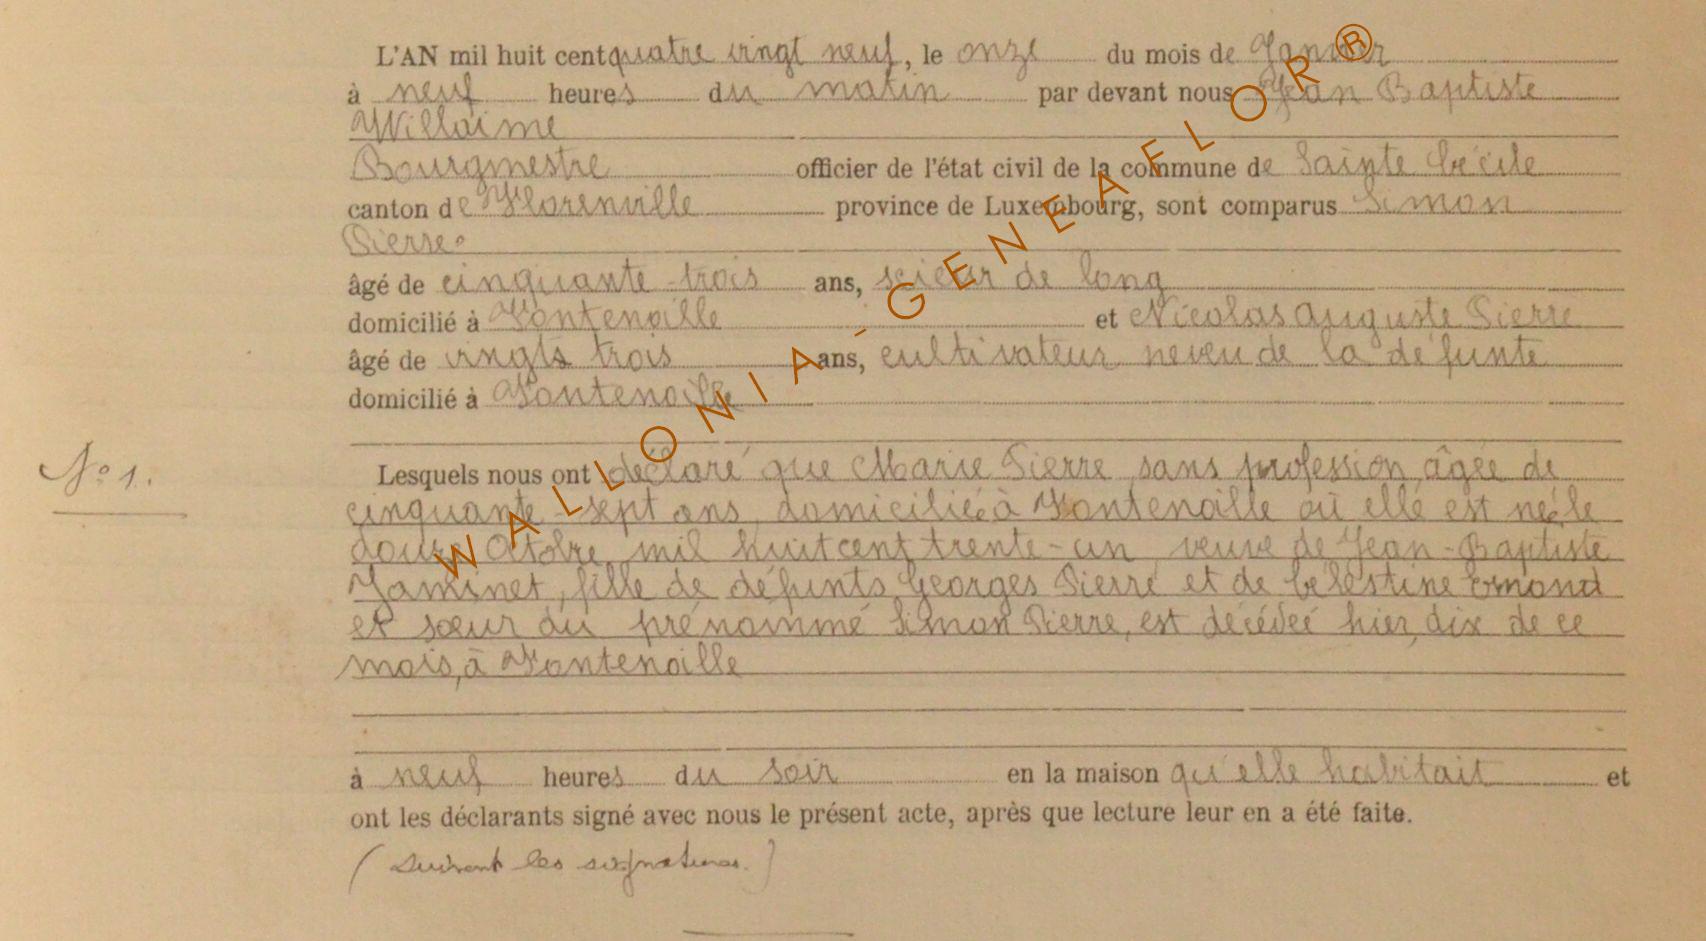 L'AN mil huit cent quatre vingt neuf, le onze du mois de Janvier
à neuf heures du matin par devant nous Jean Baptiste
Willaime
Bourgmestre officier de l'état civil de la commune de Sainte Cécile
canton de Florenville province de Luxembourg, sont comparus Simon
Pierre
âgé de cinquante-trois ans, scieur de long
domicilié à Fontenoille et Nicolas Auguste Pierre
âgé de vingts trois ans, cultivateur neveu de la défunte
domicilié à Fontenoille
N° 1.
Lesquels nous ont déclaré que Marie Pierre, sans profession, âgée de
cinquante-sept ans, domiciliée à Fontenoille où elle est née le
douze Octobre mil huit cent trente-un veuve de Jean-Baptiste
Jaminet, fille de défunts Georges Pierre et de Célestine Emond
et sœur du prénommé Simon Pierre, est décédeé hier, dix de ce
mois, à Fontenoille
à neuf heures du soir en la maison qu'elle habitait et
ont les déclarants signé avec nous le présent acte, après que lecture leur en a été faite.
(Suivent les signatures.)
WALLONIA-GENEAFLOR®